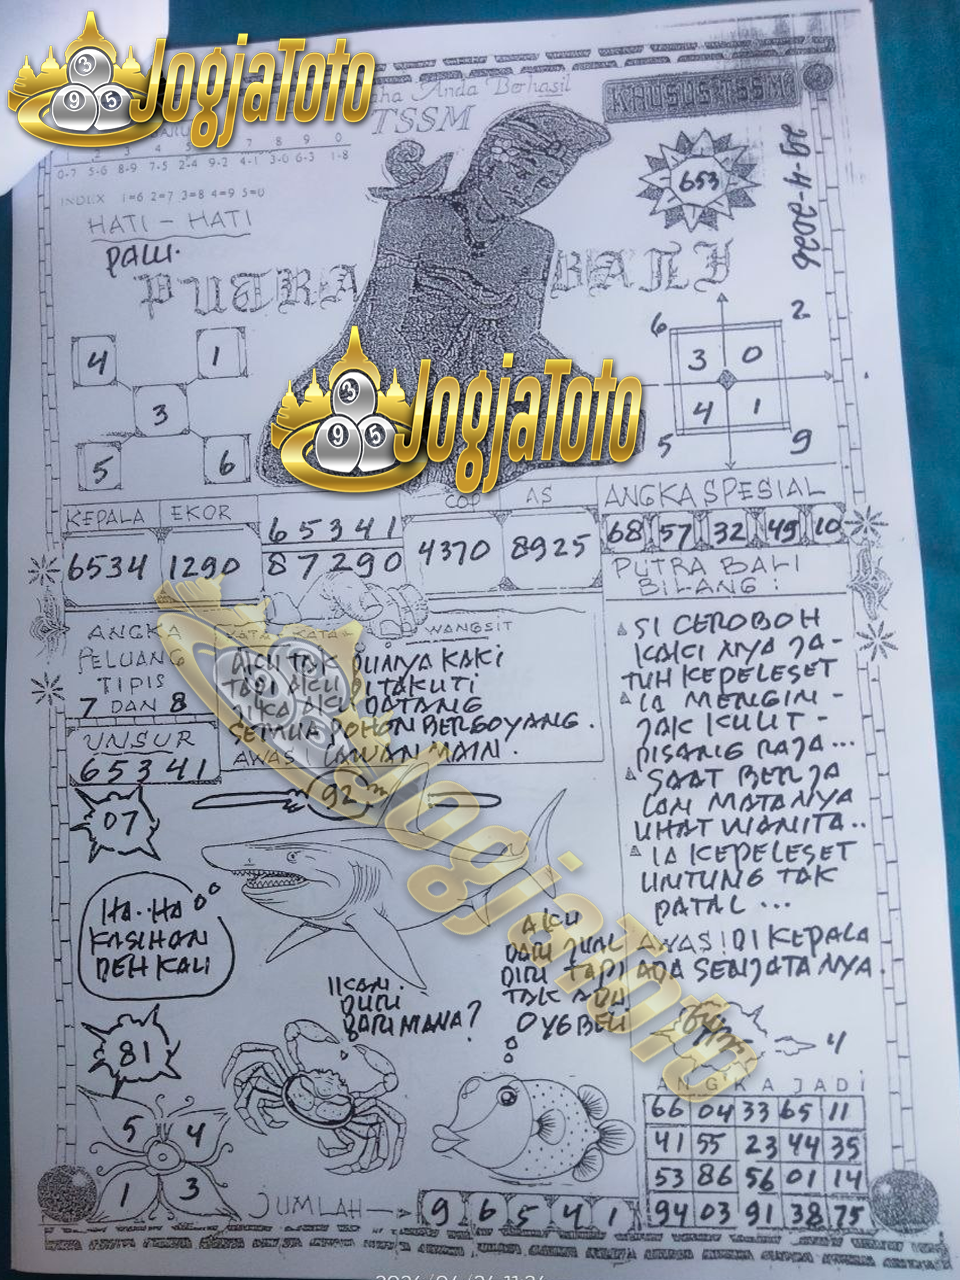 JogjaToto
Anda Berhasil
TSSM
KHUSUS TSSM
0-7 5-6 8-9 7-5 2-4 9-2 4-1 3-0 6-3 1-8
INDEX 1=6 2=7 3=8 4=9 5=0
HATI - HATI
PALU.
PUTRA BALI
653
29-4-2026
4 1
3
5 6
6 2
3 0
4 1
5 9
JogjaToto
KEPALA EKOR
6534 1290
65341
87290
COP AS
4370 8925
ANGKA SPESIAL
68 57 32 49 10
ANGKA
PELUANG
TIPIS
7 DAN 8
UNSUR
65341
KATA - KATA WANGSIT
AKU TAK PUNYA KAKI
TAPI AKU DITAKUTI
JIKA AKU DATANG
SEMUA POHON BERGOYANG.
AWAS LAWAN MAIN.
PUTRA BALI
BILANG :
SI CEROBOH
KAKI NYA JA-
TUH KEPELESET
IA MENGIN-
JAK KULIT-
PISANG RAJA...
SAAT BERJA
LAN MATANYA
LIHAT WANITA..
IA KEPELESET
UNTUNG TAK
PATAL...
AWAS! DI KEPALA
ADA SENJATANYA.
07
92
HA..HA
KASIHAN
DEH KALI
81
IKAN.
DURI
DARI MANA?
AKU
DARI JUAL
DIRI TAPI
TAK ADA
OYG BELI
JogjaToto
4
5 4
1 3
JUMLAH
9 6 5 4 1
ANGKA JADI
66 04 33 65 11
41 55 23 44 35
53 86 56 01 14
94 03 91 38 75